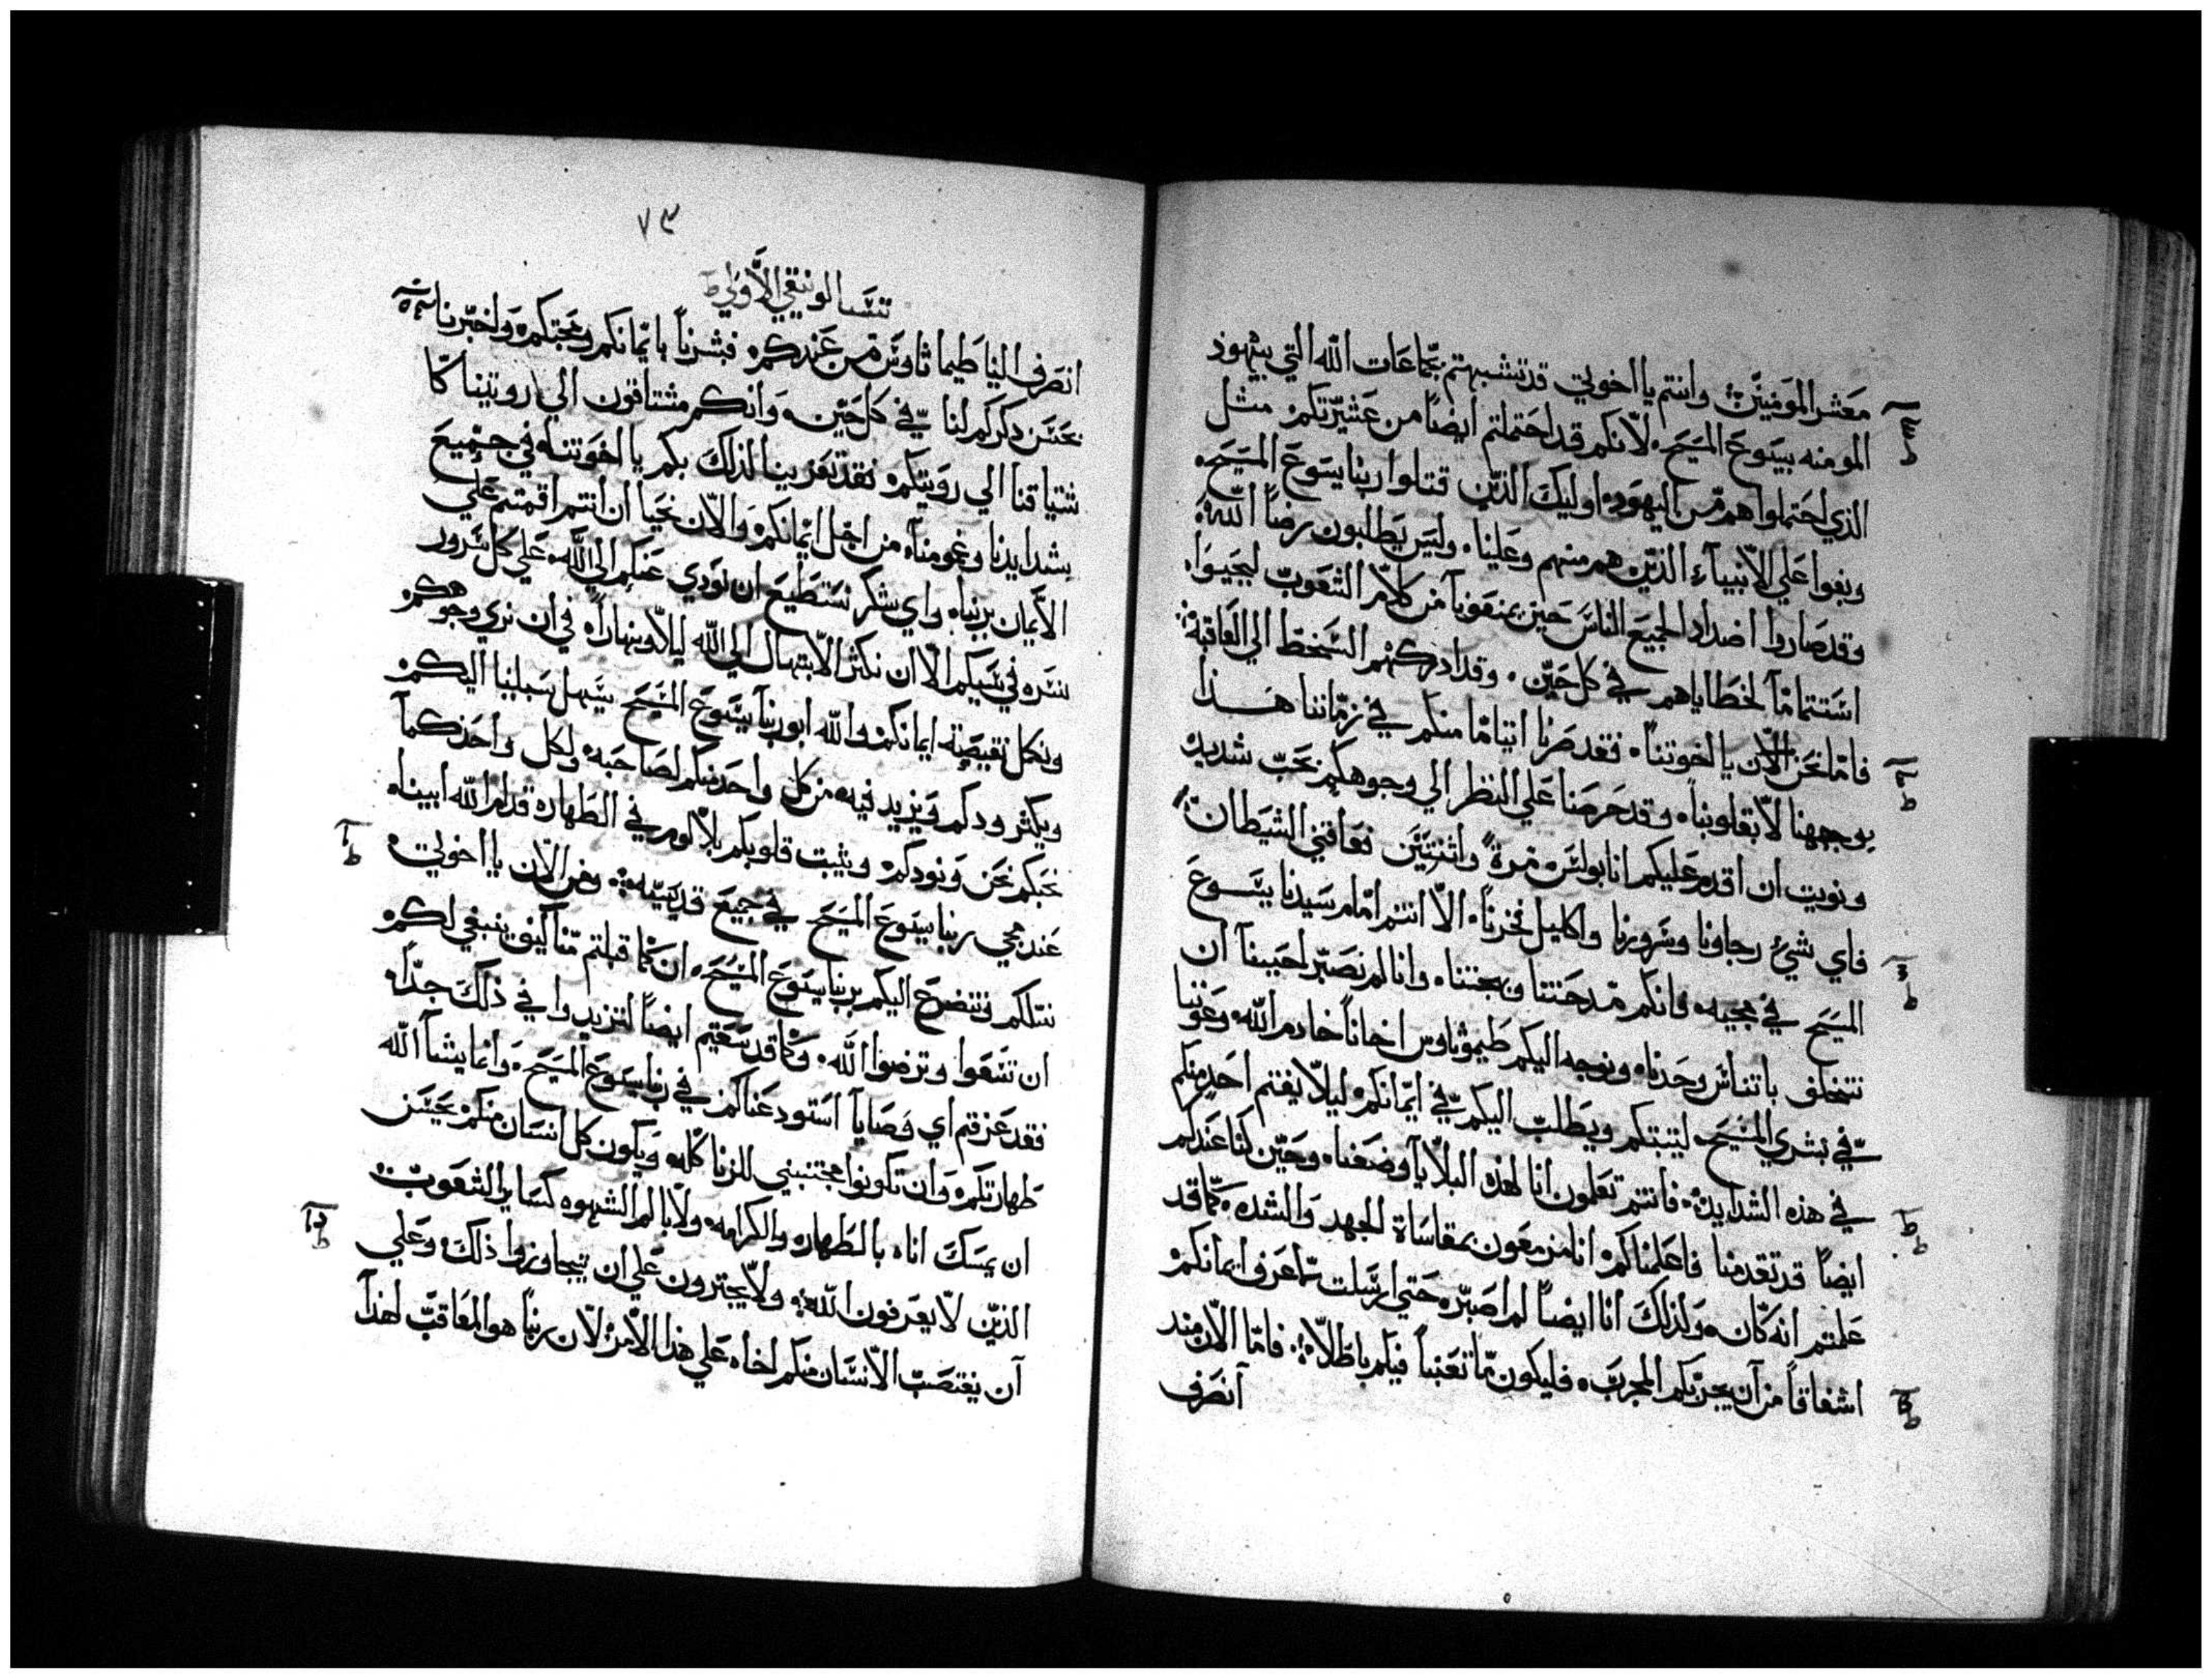 معشر المومنين وانتم يا اخوتي قد تشبهتم بجماعات الله التي بيهود
المومنه بيسوع المسيح لانكم قد احتملتم ايضا من عشيرتكم مثل
الذي احتملوا هم من اليهود اوليك الذين قتلوا ربنا يسوع المسيح
وبغوا علي الانبياء الذين هم منهم وعلينا وليس يطلبون رضا الله
وقد صاروا اضداد الجميع الناس حين يمنعونا من كلام الشعوب ليحيوا
استتماما لخطاياهم في كل حين وقد ادركهم السخط الي العاقبة
فاما نحن الان يا اخوتنا فقد صرنا ايتاما منكم في زماننا هذا
بوجهنا لا بقلوبنا وقد حرصنا علي النظر الي وجوهكم بحب شديد
ونويت ان اقدم عليكم انا بولس مرة واثنتين فعاقني الشيطان
فاي شيء رجاونا وسرورنا واكليل فخرنا الا انتم امام سيدنا يسوع
المسيح في مجيه فانكم مدحتنا وبهجتنا وانا لم نصبر احببنا ان
نتخلف باتناس وحدنا ونوجه اليكم طيموثاوس اخانا خادم الله وعوننا
في بشري المسيح ليثبتكم ويطلب اليكم في ايمانكم ليلا يفتم احد منكم
في هذه الشدايد فانتم تعلمون انا لهذه البلايا وضعنا وحين كنا عندكم
ايضا قد تقدمنا فاعلمناكم انا مزمعون بمقاساة الجهد والشده كما قد
علمتم انه كان ولذلك انا ايضا لم اصبر حتي ارسلت لاعرف ايمانكم
اشفاقا من ان يجربكم المجرب فليكون ما تعبنا فيكم باطلا فاما الان منذ
انصرف
٧٣
تسالونيقي الاولي
انصرف الينا طيماثاوس من عندكم فبشرنا بايمانكم ومحبتكم واخبرنا
بحسن ذكركم لنا في كل حين وانكم مشتاقون الي رويتنا كا
شتياقنا الي رويتكم فقد تعزينا لذلك بكم يا اخوتنا في جميع
شدايدنا وغمومنا من اجل ايمانكم والان نحيا ان انتم اقمتم علي
الايمان بربنا واي شكر نستطيع ان نودي عنكم الي الله علي كل سرور
نسره في سببكم الا ان نكثر الابتهال الي الله ليلا ونهارا في ان نري وجوهكم
ونكمل نقيصة ايمانكم والله ابونا وربنا يسوع المسيح يسهل سبلينا اليكم
ويكثر ودكم ويزيد فيه من كل واحد منكم لصاحبه ولكل واحد كما
نحبكم نحن ونودكم ويثبت قلوبكم بلا لوم في الطهاره قدام الله ابينا
عند مجي ربنا يسوع المسيح في جميع قديسيه ومن الان يا اخوتي
نسلكم ونتضرع اليكم بربنا يسوع المسيح ان كما قبلتم منا كيف ينبغي لكم
ان تسعوا وترضوا الله وكما قد سعيتم ايضا لتزيدوا في ذلك جدا
فقد عرفتم اي وصايا استودعناكم في ربنا يسوع المسيح وانما يشا الله
طهارتكم وان تكونوا مجتنبيني للزنا كله ويكون كل انسان منكم يحسن
ان يمسك اناه بالطهاره والكرامه ولا بالم الشهوه كساير الشعوب
الذين لا يعرفون الله ولا يجترون علي ان يتجاوزوا ذلك وعلي
ان يغتصب الانسان منكم اخاه علي هذا الامر لان ربنا هو المعاقب لهذا